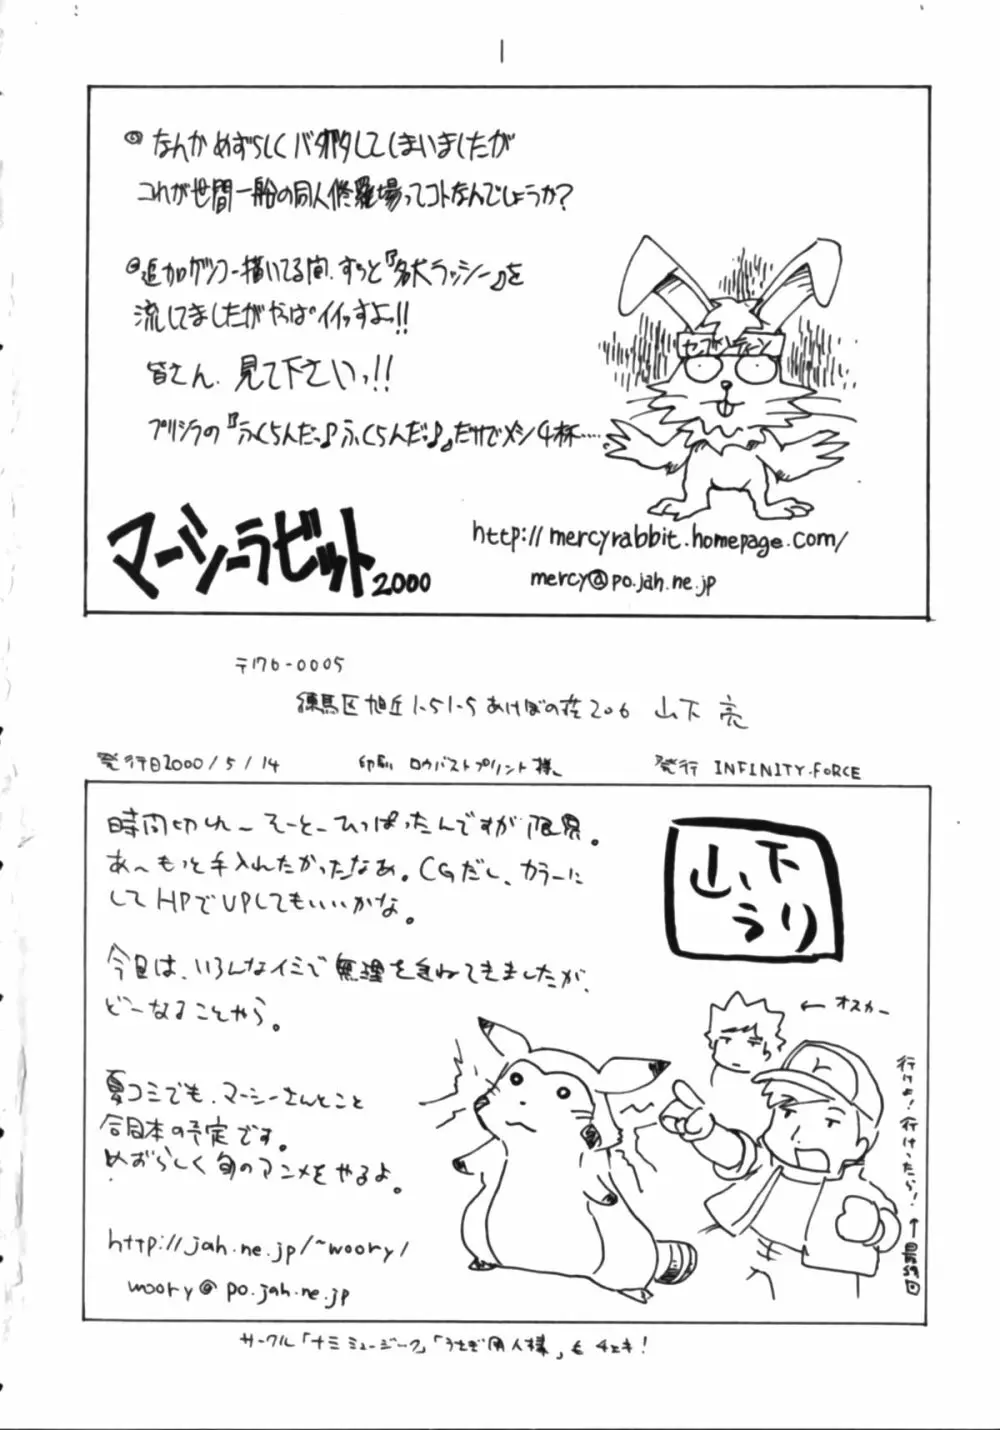 ◎なんか めずらしくバタバタしてしまいましたが
これが世間一船の同人修羅場ってコトなんでしょうか?
◎追加ゲンコー描いてる間、ずっと『名犬ラッシー』を
流してましたがやっぱイイっすよッ!!
皆さん、見て下さいっ!!
プリシラの『ふくらんだっ♪ふくらんだっ♪』だけでメシ4杯……
セブンティーン
マーシーラビット2000
http://mercyrabbit.homepage.com/
mercy@po.jah.ne.jp
〒176-0005
練馬区旭丘1-51-5 あけぼの荘206 山下 亮
発行日2000/5/14 印刷 ロウバストプリント様。 発行 INFINITY-FORCE
時間切れ〜 そーとーひっぱったんですが限界。
あ〜もっと手入れしたかったなあ。CGだし、カラーに
してHPでUPしてもいいかな。
今回は、いろんなイミで無理を重ねてきましたが、
どーなることやら。
夏コミでも、マーシーさんとこと
合同本の予定です。
めずらしく旬のアニメをやるよ。
http://jah.ne.jp/~woory/
woory@po.jah.ne.jp
山下
うり
← オスカー
行けよ!行けったら!
↑最終回
サークル「ナミミュージーク」「うさぎ同人様」も